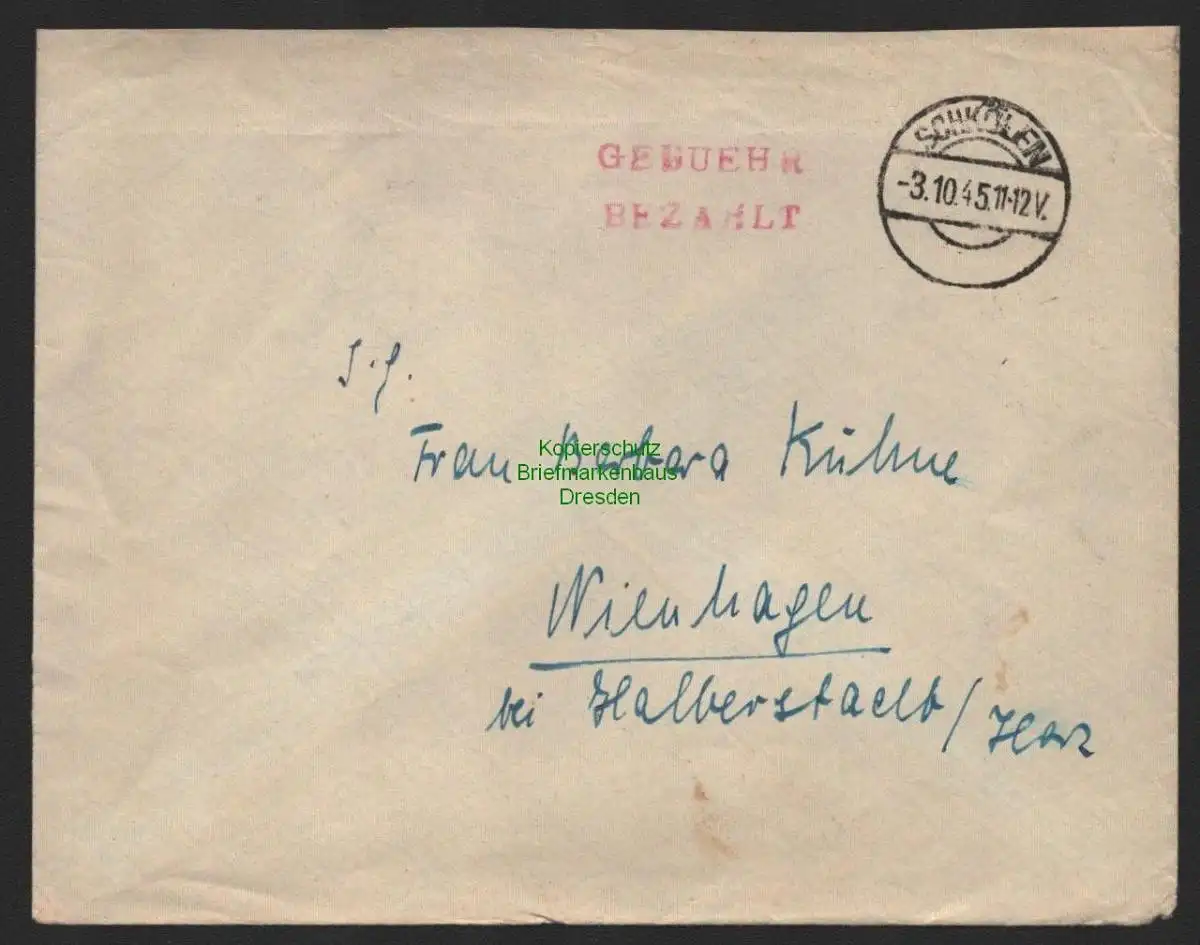 SCHKÖLEN
-3.10.45.11-12V.
GEBUEHR
BEZAHLT
S.H.
Frau Barbara Kühne
Kopierschutz
Briefmarkenhaus
Dresden
Wienhagen
bei Halberstadt/Harz